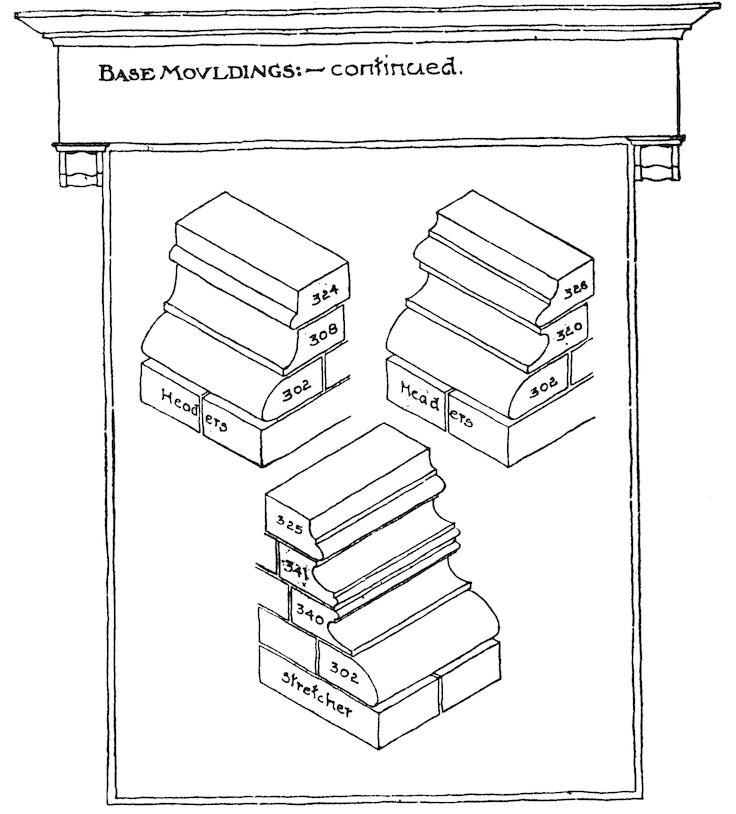 BASE MOVLDINGS:— continued.
324
308
302
Headers
328
320
302
Headers
325
341
340
302
stretcher